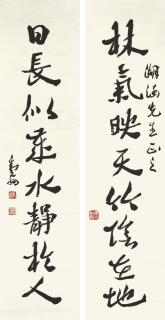 林氣映天竹陰在地
湖海先生正之
日長似歲水靜於人